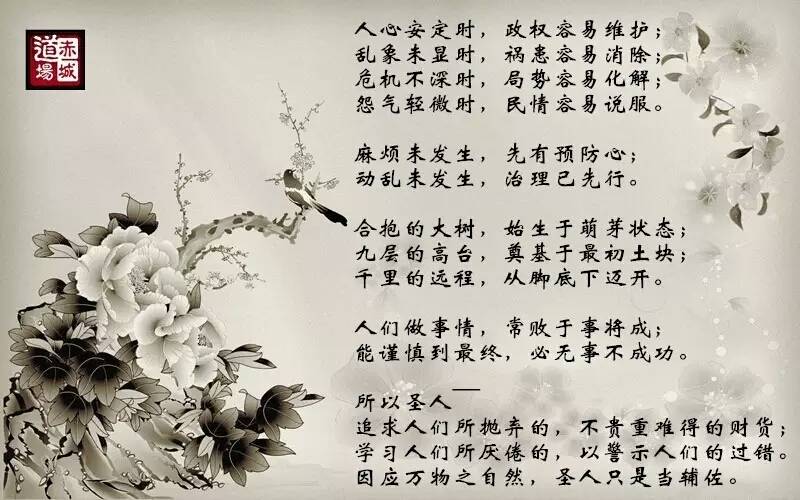 赤城
道場
人心安定时，政权容易维护；
乱象未显时，祸患容易消除；
危机不深时，局势容易化解；
怨气轻微时，民情容易说服。
麻烦未发生，先有预防心；
动乱未发生，治理已先行。
合抱的大树，始生于萌芽状态；
九层的高台，奠基于最初土块；
千里的远程，从脚底下迈开。
人们做事情，常败于事将成；
能谨慎到最终，必无事不成功。
所以圣人
追求人们所抛弃的，不贵重难得的财货；
学习人们所厌倦的，以警示人们的过错。
因应万物之自然，圣人只是当辅佐。